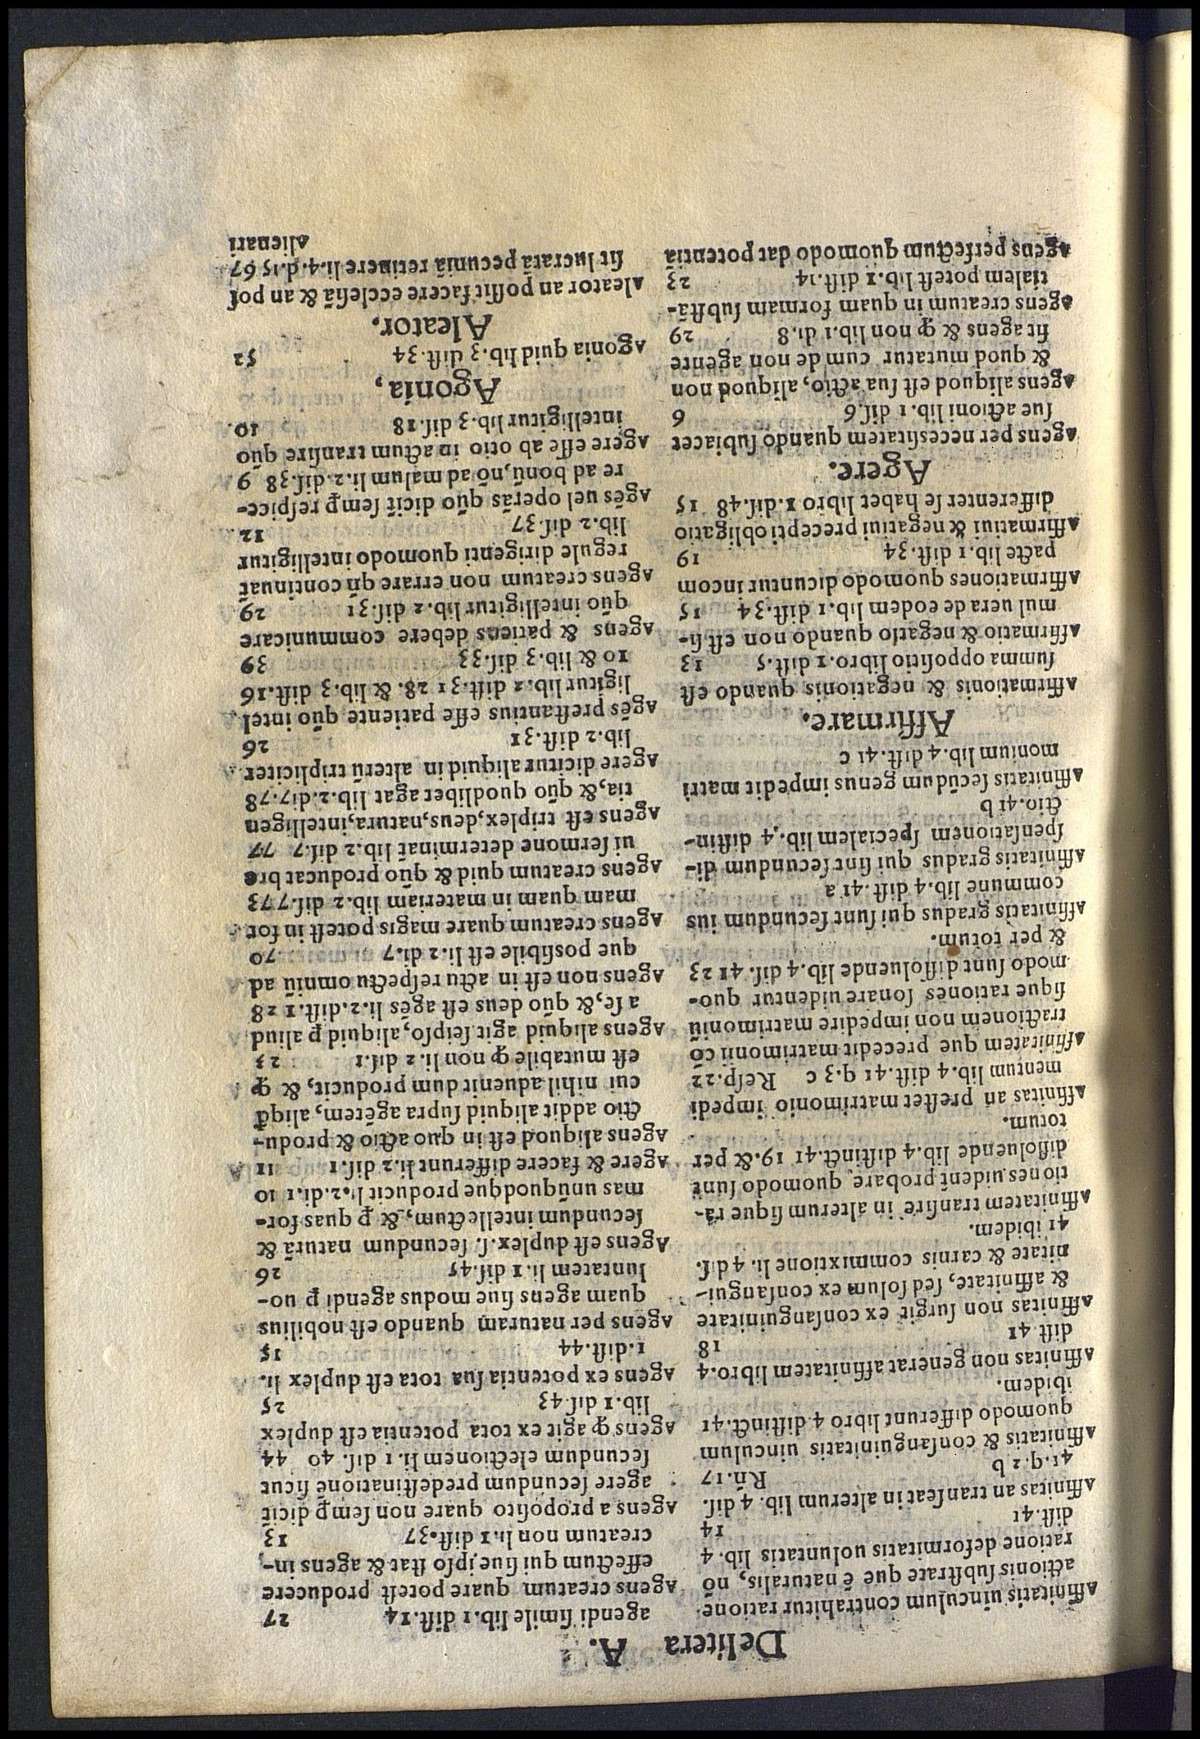 Delitera A.
Affinitatis uinculum contrahitur ratione
actionis substrate que ē naturalis, nō
ratione deformitatis uoluntatis lib. 4
dist. 41 14
Affinitas an transeat in alterum lib. 4 dis.
41. q. 2 b Rñ. 17
Affinitatis & consanguinitatis uinculum
quomodo differunt libro 4. distinct. 41
ibidem.
Affinitas non generat affinitatem libro. 4
dist. 41 18
Affinitas non surgit ex consanguinitate
& affinitate, sed solum ex consangui-
nitate & carnis commixtione li. 4 ds.
41 ibidem.
Affinitatem transire in alterum sique rā-
tiones uident̄ probare, quomodo sunt
dissoluende lib. 4 distinct. 41 19. & per
totum.
Affinitas an prestet matrimonio impedi
mentum lib. 4 dist. 41 q. 3 c Resp. 22
Affinitatem que precedit matrimonii cō
tractionem non impedire matrimoniū
sique rationes sonare uidentur quo-
modo sunt dissoluende lib. 4 dis. 41 23
& per totum.
Affinitatis gradus qui sunt secundum ius
commune lib. 4 dist. 41 a
Affinitatis gradus qui sint secundum di-
spensationem specialem lib. 4 distin-
ctio. 41 b
Affinitatis secūdum genus impedit matri
monium lib. 4 dist. 41 c
Affirmare.
Affirmationis & negationis quando est
summa oppositio libro. 1 dist. 5 13
Affirmatio & negatio quando non est si-
mul uera de eodem lib. 1 dist. 34 15
Affirmationes quomodo dicuntur incom
pacte lib. 1 dist. 34 19
Affirmatiui & negatiui precepti obligatio
differenter se habet libro 1. dis. 48 15
Agere.
Agens per necessitatem quando subiacet
sue actioni lib. 1 dis. 6 6
Agens aliquod est sua actio, aliquod non
& quod mutatur cum de non agente
fit agens & ꝙ non lib. 1 di. 8 29
Agens creatum in quam formam substā-
tialem potest lib. 1 dist. 14 23
Agens perfectum quomodo dat potentiā
agendi simile lib. 1 dist. 14 27
Agens creatum quare potest producere
effectum qui siue ipso stat & agens in-
creatum non li. 1 dist. 37 13
Agens a proposito quare non semꝑ dicit̄
agere secundum predestinatione sicut
secundum electionem li. 1 dis. 40 44
Agens ꝙ agit ex tota potentia est duplex
lib. 1 dis. 43 25
Agens ex potentia sua tota est duplex li.
1. dist. 44 15
Agens per naturam quando est nobilius
quam agens siue modus agendi ꝑ uo-
luntatem li. 1 dis. 45 26
Agens est duplex. s. secundum naturā &
secundum intellectum, & ꝑ quas for-
mas unūquodque producit li. 2. di. 1 10
Agere & facere differunt li. 2 dis. 1 11
Agens aliquod est in quo actio & produ-
ctio addit aliquid supra agētem, aliqđ
cui nihil aduenit dum producit, & ꝙ
est mutabile ꝙ non li. 2 dis. 1 23
Agens aliquid agit seipso, aliquid ꝑ aliud
a se, & quō deus est agēs li. 2. dist. 1 28
Agens non est in actu respectu omniū ad
que possibile est li. 2 di. 7 70
Agens creatum quare magis potest in for
mam quam in materiam lib. 2 dis. 7 73
Agens creatum quid & quō producat bre
ui sermone determinat̄ lib. 2 dis. 7 77
Agens est triplex, deus, natura, intelligen
tia, & quō quodliber agat lib. 2. di. 7. 78
Agere dicitur aliquid in alterū tripliciter
lib. 2 dist. 31 26
Agēs prestantius esse patiente quō intel
ligitur lib. 2 dist. 31 28. & lib. 3 dist. 16
10 & lib. 3 dis. 33 39
Agens & patiens debere communicare
quō intelligitur lib. 2 dis. 31 29
Agens creatum non errare qñ continuat̄
regule dirigenti quomodo intelligitur
lib. 2 dis. 37 12
Agēs uel operās quō dicit̄ semꝑ respice-
re ad bonū, nō ad malum li. 2. dis. 38 9
Agere esse ab otio in actum transire quō
intelligitur lib. 3 dis. 18 10.
Agonia,
Agonia quid lib. 3 dist. 34 52
Aleator.
Aleator an possit facere ecclesiā & an pos
sit lucratā pecuniā retinere li. 4. d. 15 67
Alienari